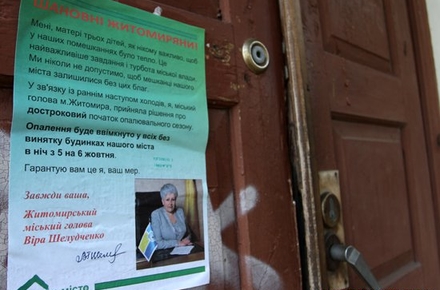 ШАНОВНІ ЖИТОМИРЯНИ!
Мені, матері трьох дітей, як нікому важливо, щоб
у наших помешканнях було тепло. Це
найважливіше завдання і турбота міської влади.
Ми ніколи не допустимо, щоб мешканці нашого
міста залишилися без цих благ.
У зв'язку із раннім наступом холодів, я, міський
голова м.Житомира, прийняла рішення про
достроковий початок опалювального сезону.
Опалення буде ввімкнуто у всіх без
винятку будинках нашого міста
в ніч з 5 на 6 жовтня.
Гарантую вам це я, ваш мер.
Завжди ваша,
Житомирський
міський голова
Віра Шелудченко
місто